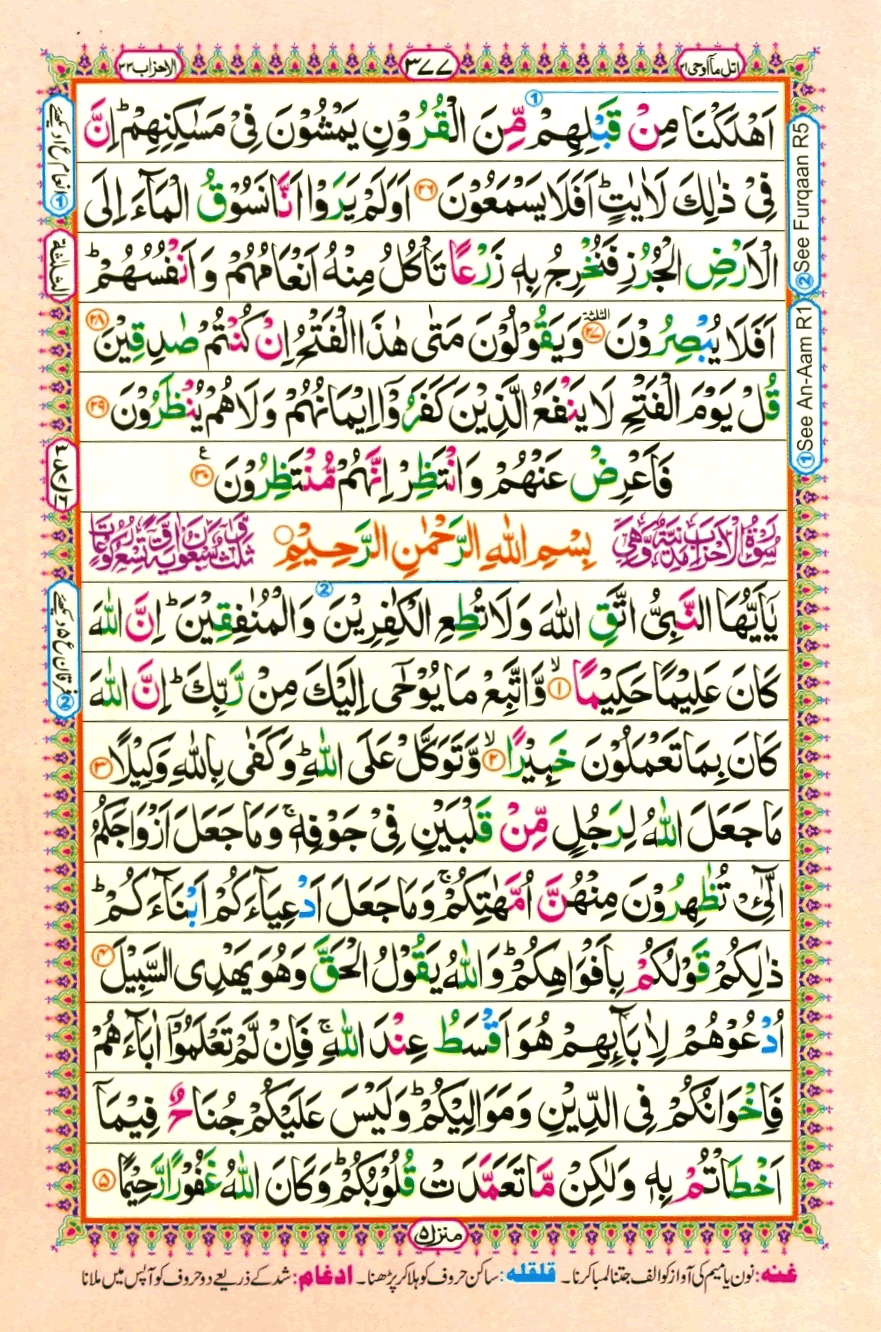 اتل ماۤ اوحی ۲۱
۳۷۷
الاحزاب ۳۳
اَهْلَكْنَا مِنْ قَبْلِهِمْ ① مِّنَ الْقُرُوْنِ يَمْشُوْنَ فِيْ مَسٰكِنِهِمْ ؕ اِنَّ
فِيْ ذٰلِكَ لَاٰيٰتٍ ؕ اَفَلَا يَسْمَعُوْنَ ۲۶ اَوَلَمْ يَرَوْا اَنَّا نَسُوْقُ الْمَآءَ اِلَى
الْاَرْضِ الْجُرُزِ فَنُخْرِجُ بِهٖ زَرْعًا تَاْكُلُ مِنْهُ اَنْعَامُهُمْ وَاَنْفُسُهُمْ ؕ
اَفَلَا يُبْصِرُوْنَ ۲۷ الثلثة وَيَقُوْلُوْنَ مَتٰى هٰذَا الْفَتْحُ اِنْ كُنْتُمْ صٰدِقِيْنَ ۲۸
قُلْ يَوْمَ الْفَتْحِ لَا يَنْفَعُ الَّذِيْنَ كَفَرُوْۤا اِيْمَانُهُمْ وَلَا هُمْ يُنْظَرُوْنَ ۲۹
فَاَعْرِضْ عَنْهُمْ وَانْتَظِرْ اِنَّهُمْ مُّنْتَظِرُوْنَ ۳۰ ع
سُوْرَةُ الْاَحْزَابِ مَدَنِيَّةٌ وَّهِيَ بِسْمِ اللّٰهِ الرَّحْمٰنِ الرَّحِيْمِ ثَلٰثٌ وَّسَبْعُوْنَ اٰيَةً وَّتِسْعُ رُكُوْعَاتٍ
يٰۤاَيُّهَا النَّبِيُّ اتَّقِ اللّٰهَ وَلَا تُطِعِ الْكٰفِرِيْنَ ② وَالْمُنٰفِقِيْنَ ؕ اِنَّ اللّٰهَ
كَانَ عَلِيْمًا حَكِيْمًا ۱ۙ وَّاتَّبِعْ مَا يُوْحٰۤى اِلَيْكَ مِنْ رَّبِّكَ ؕ اِنَّ اللّٰهَ
كَانَ بِمَا تَعْمَلُوْنَ خَبِيْرًا ۲ۙ وَّتَوَكَّلْ عَلَى اللّٰهِ ؕ وَكَفٰى بِاللّٰهِ وَكِيْلًا ۳
مَا جَعَلَ اللّٰهُ لِرَجُلٍ مِّنْ قَلْبَيْنِ فِيْ جَوْفِهٖ ۚ وَمَا جَعَلَ اَزْوَاجَكُمُ
الّٰٓئِيْ تُظٰهِرُوْنَ مِنْهُنَّ اُمَّهٰتِكُمْ ۚ وَمَا جَعَلَ اَدْعِيَآءَكُمْ اَبْنَآءَكُمْ ؕ
ذٰلِكُمْ قَوْلُكُمْ بِاَفْوَاهِكُمْ ؕ وَاللّٰهُ يَقُوْلُ الْحَقَّ وَهُوَ يَهْدِى السَّبِيْلَ ۴
اُدْعُوْهُمْ لِاٰبَآئِهِمْ هُوَ اَقْسَطُ عِنْدَ اللّٰهِ ۚ فَاِنْ لَّمْ تَعْلَمُوْۤا اٰبَآءَهُمْ
فَاِخْوَانُكُمْ فِى الدِّيْنِ وَمَوَالِيْكُمْ ؕ وَلَيْسَ عَلَيْكُمْ جُنَاحٌ فِيْمَاۤ
اَخْطَاْتُمْ بِهٖ وَلٰكِنْ مَّا تَعَمَّدَتْ قُلُوْبُكُمْ ؕ وَكَانَ اللّٰهُ غَفُوْرًا رَّحِيْمًا ۵
② See Furqaan R5
① See An-Aam R1
① انعام ع ۱ دیکھیے
الثلثة
② فرقان ع ۵ دیکھیے
منزل ۵
غنه: نون یا میم کی آواز کو الف جتنا لمبا کرنا۔ قلقله: ساکن حروف کو ہلا کر پڑھنا۔ ادغام: شد کے ذریعے دو حروف کو آپس میں ملانا